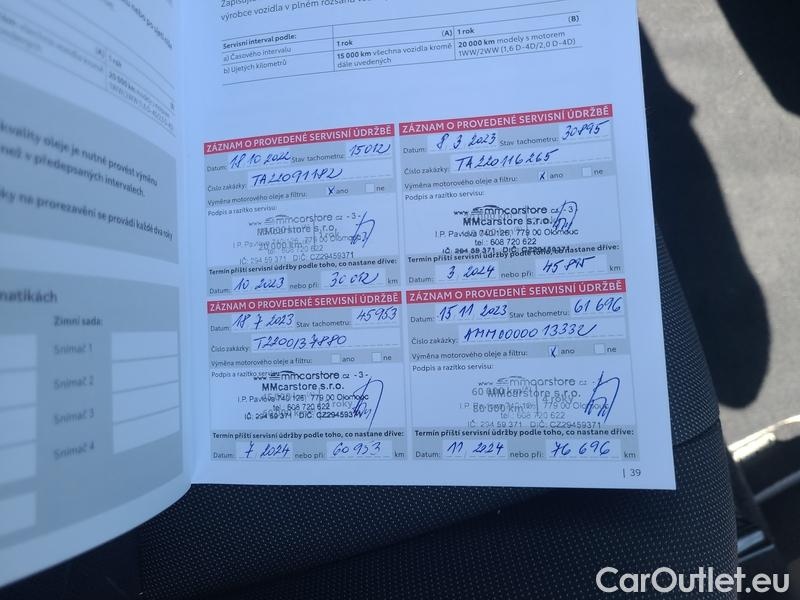 výrobce vozidla v plném rozsahu
Servisní interval podle:
(A)
(B)
a) Časového intervalu
1 rok
1 rok
b) Ujetých kilometrů
15 000 km všechna vozidla kromě
dále uvedených
20 000 km modely s motorem
1WW/2WW (1,6 D-4D/2,0 D-4D)
(A)
1 rok
(B)
kvality oleje je nutné provést výměnu
než v předepsaných intervalech.
ky na prorezavění se provádí každé dva roky
matikách
Zimní sada:
Snímač 1
Snímač 2
Snímač 3
Snímač 4
ZÁZNAM O PROVEDENÉ SERVISNÍ ÚDRŽBĚ
Datum: 18 10 2022 Stav tachometru: 15012
Číslo zakázky: TA22091182
Výměna motorového oleje a filtru: x ano ne
Podpis a razítko servisu:
www.mmcarstore.cz - 3 -
MMcarstore s.r.o.
I.P. Pavlova 740 126, 779 00 Olomouc
tel.: 608 720 622
IČ: 294 59 371 DIČ: CZ29459371
Termín příští servisní údržby podle toho, co nastane dříve:
Datum: 10 2023 nebo při: 30 012 km
ZÁZNAM O PROVEDENÉ SERVISNÍ ÚDRŽBĚ
Datum: 8 3 2023 Stav tachometru: 30895
Číslo zakázky: TA220116265
Výměna motorového oleje a filtru: x ano ne
Podpis a razítko servisu:
www.mmcarstore.cz - 3 -
MMcarstore s.r.o.
I.P. Pavlova 740 126, 779 00 Olomouc
tel.: 608 720 622
IČ: 294 59 371 DIČ: CZ29459371
Termín příští servisní údržby podle toho, co nastane dříve:
Datum: 3 2024 nebo při: 45 895 km
ZÁZNAM O PROVEDENÉ SERVISNÍ ÚDRŽBĚ
Datum: 18 7 2023 Stav tachometru: 45953
Číslo zakázky: T2200137880
Výměna motorového oleje a filtru: ano ne
Podpis a razítko servisu:
www.mmcarstore.cz - 3 -
MMcarstore s.r.o.
I.P. Pavlova 740 126, 779 00 Olomouc
tel.: 608 720 622
IČ: 294 59 371 DIČ: CZ29459371
Termín příští servisní údržby podle toho, co nastane dříve:
Datum: 7 2024 nebo při: 60 953 km
ZÁZNAM O PROVEDENÉ SERVISNÍ ÚDRŽBĚ
Datum: 15 11 2023 Stav tachometru: 61 696
Číslo zakázky: AMM00000 13332
Výměna motorového oleje a filtru: x ano ne
Podpis a razítko servisu:
www.mmcarstore.cz - 3 -
MMcarstore s.r.o.
60 000 km 4 roky
I.P. Pavlova 740 126, 779 00 Olomouc
80 000 km tel.: 608 720 622
IČ: 294 59 371 DIČ: CZ29459371
Termín příští servisní údržby podle toho, co nastane dříve:
Datum: 11 2024 nebo při: 76 696 km
| 39
CarOutlet.eu